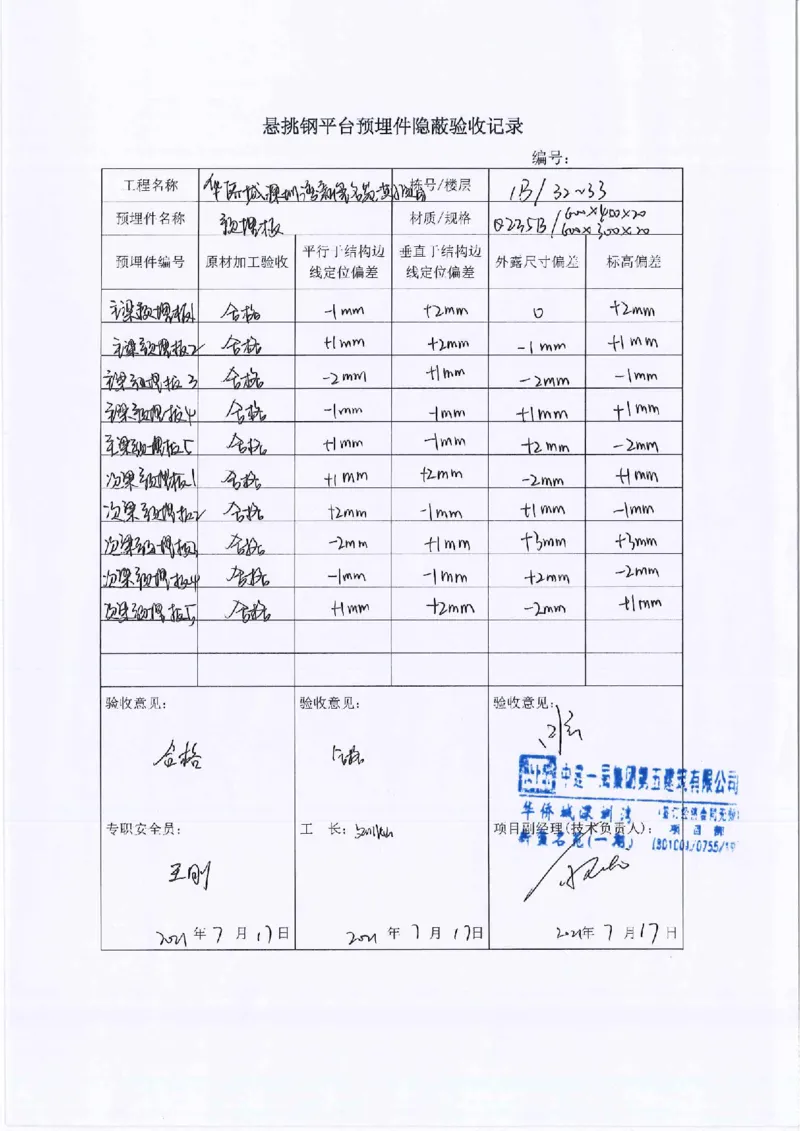 悬挑钢平台预埋件隐蔽验收记录
编号:
工程名称 华侨城深圳湾新玺名苑 栋号/楼层 1B/32~33
预埋件名称 预埋板 材质/规格 Q235B/600×400×20
600×300×20
预埋件编号 原材加工验收 平行于结构边线定位偏差 垂直于结构边线定位偏差 外露尺寸偏差 标高偏差
主梁预埋板1 合格 -1mm +2mm 0 +2mm
主梁预埋板2 合格 +1mm +2mm -1mm +1mm
主梁预埋板3 合格 -2mm +1mm -2mm -1mm
主梁预埋板4 合格 -1mm -1mm +1mm +1mm
主梁预埋板5 合格 +1mm -1mm +2mm -2mm
次梁预埋板1 合格 +1mm +2mm -2mm +1mm
次梁预埋板2 合格 +2mm -1mm +1mm -1mm
次梁预埋板3 合格 -2mm +1mm +3mm +3mm
次梁预埋板4 合格 -1mm -1mm +2mm -2mm
次梁预埋板5 合格 +1mm +2mm -2mm +1mm
验收意见: 验收意见: 验收意见:
合格 合格
中建一局集团第五建筑有限公司
华侨城深圳湾
专职安全员: 工 长: 项目副经理(技术负责人):
新玺名苑(一期)
王刚
2021年7月17日 2021年7月17日 2021年7月17日